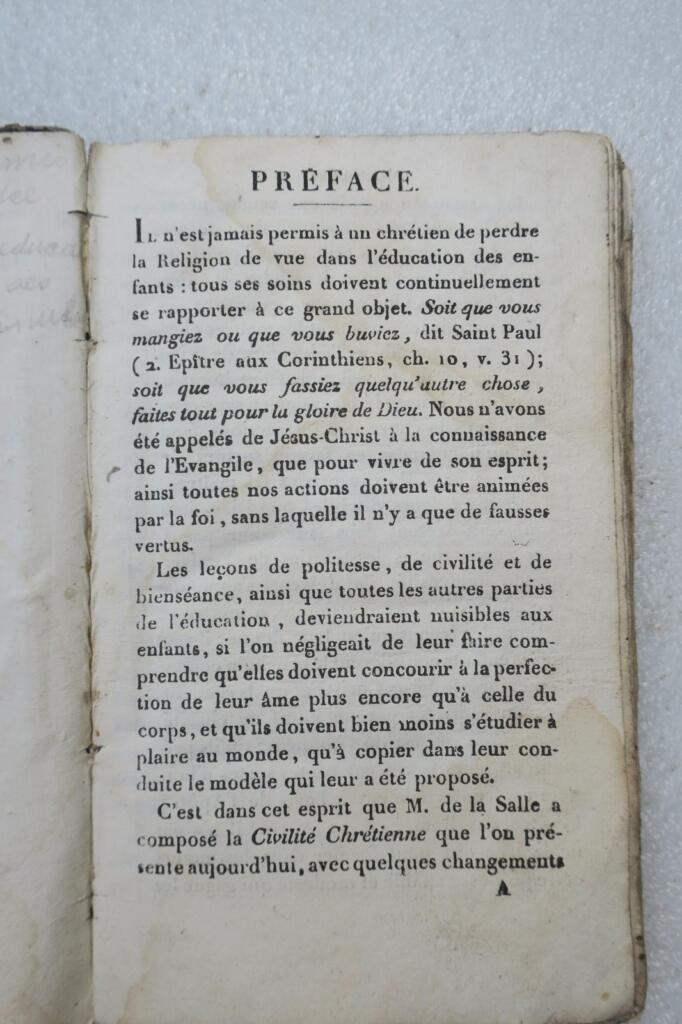 PRÉFACE.
IL n'est jamais permis à un chrétien de perdre
la Religion de vue dans l'éducation des en-
fants : tous ses soins doivent continuellement
se rapporter à ce grand objet. Soit que vous
mangiez ou que vous buviez, dit Saint Paul
( 2. Epître aux Corinthiens, ch. 10, v. 31 );
soit que vous fassiez quelqu'autre chose,
faites tout pour la gloire de Dieu. Nous n'avons
été appelés de Jésus-Christ à la connaissance
de l'Evangile, que pour vivre de son esprit;
ainsi toutes nos actions doivent être animées
par la foi, sans laquelle il n'y a que de fausses
vertus.
Les leçons de politesse, de civilité et de
bienséance, ainsi que toutes les autres parties
de l'éducation, deviendraient nuisibles aux
enfants, si l'on négligeait de leur faire com-
prendre qu'elles doivent concourir à la perfec-
tion de leur âme plus encore qu'à celle du
corps, et qu'ils doivent bien moins s'étudier à
plaire au monde, qu'à copier dans leur con-
duite le modèle qui leur a été proposé.
C'est dans cet esprit que M. de la Salle a
composé la Civilité Chrétienne que l'on pré-
sente aujourd'hui, avec quelques changements
A